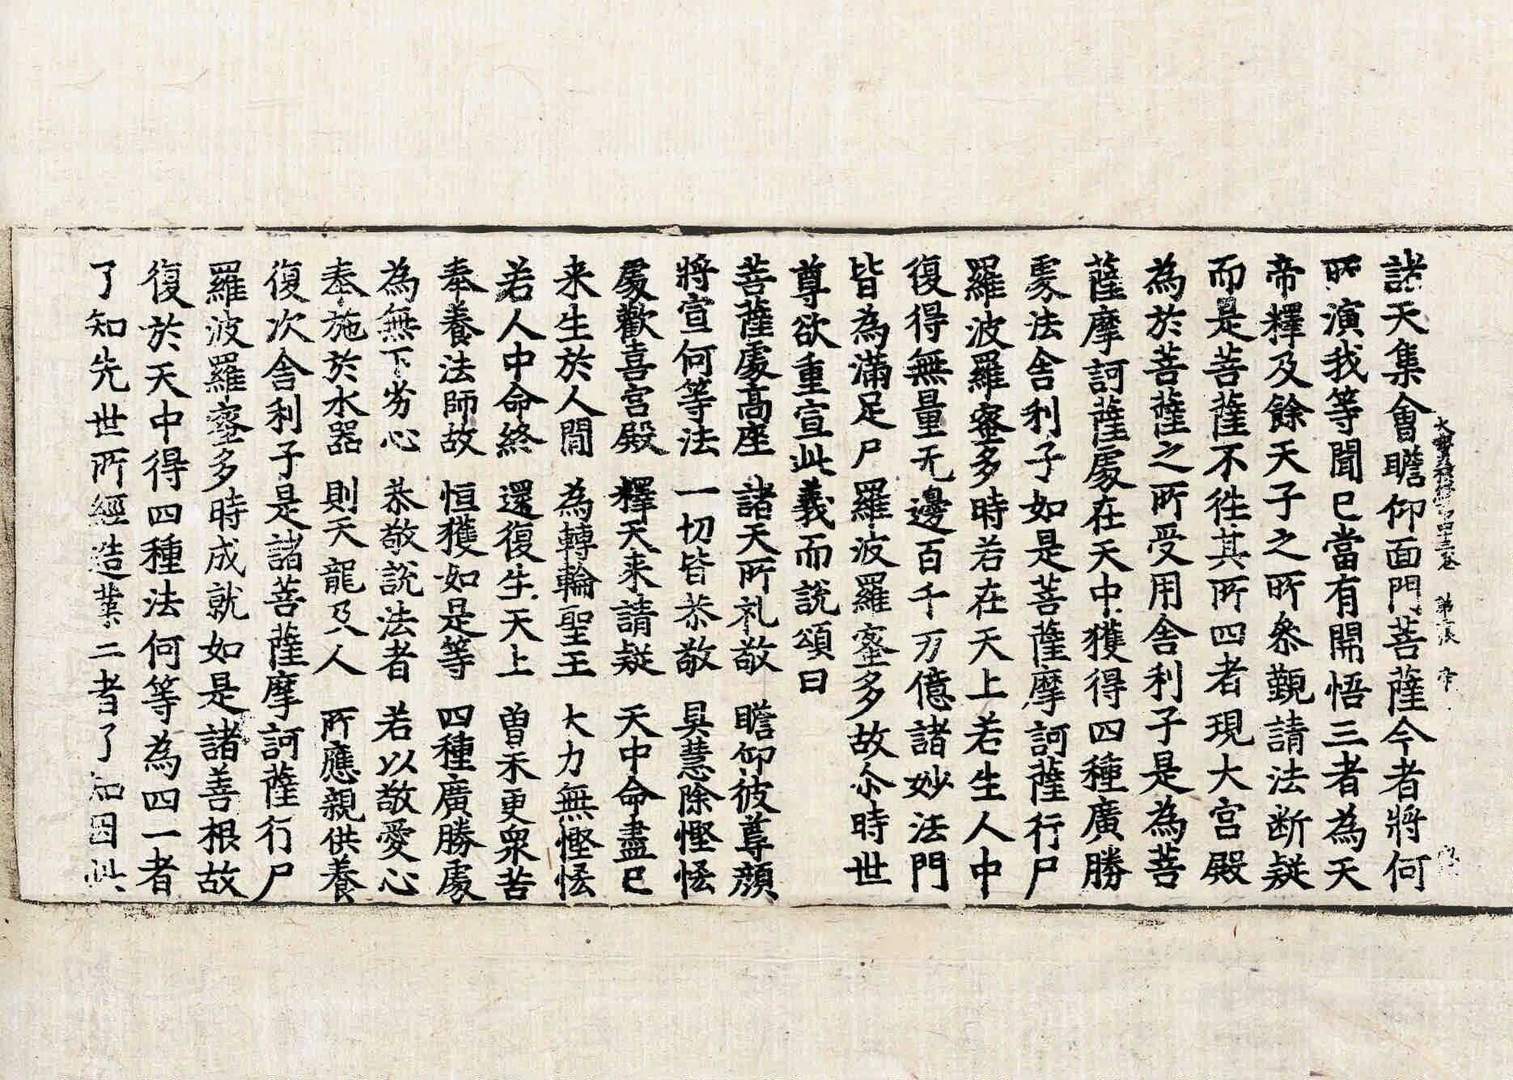 大寶積經第四十三卷 第二張 帝
諸天集會瞻仰面門菩薩今者將何
所演我等聞已當有開悟三者為天
帝釋及餘天子之所叅覲請法断疑
而是菩薩不徃其所四者現大宮殿
為於菩薩之所受用舍利子是為菩
薩摩訶薩䖏在天中獲得四種廣勝
䖏法舍利子如是菩薩摩訶薩行尸
羅波羅蜜多時若在天上若生人中
復得無量无邊百千万億諸妙法門
皆為滿足尸羅波羅蜜多故尒時世
尊欲重宣此義而說頌曰
菩薩䖏髙座 諸天所礼敬 瞻仰彼尊顔
將宣何等法 一切皆恭敬 具慧除慳悋
䖏歡喜宮殿 釋天来請疑 天中命盡已
来生於人間 為轉輪聖王 大力無慳悋
若人中命終 還復生天上 曽不更衆苦
奉養法師故 恒獲如是等 四種廣勝䖏
為無下劣心 恭敬說法者 若以敬愛心
奉施於水器 則天龍及人 所應親供養
復次舍利子是諸菩薩摩訶薩行尸
羅波羅蜜多時成就如是諸善根故
復於天中得四種法何等為四一者
了知先世所經造業二者了知因此